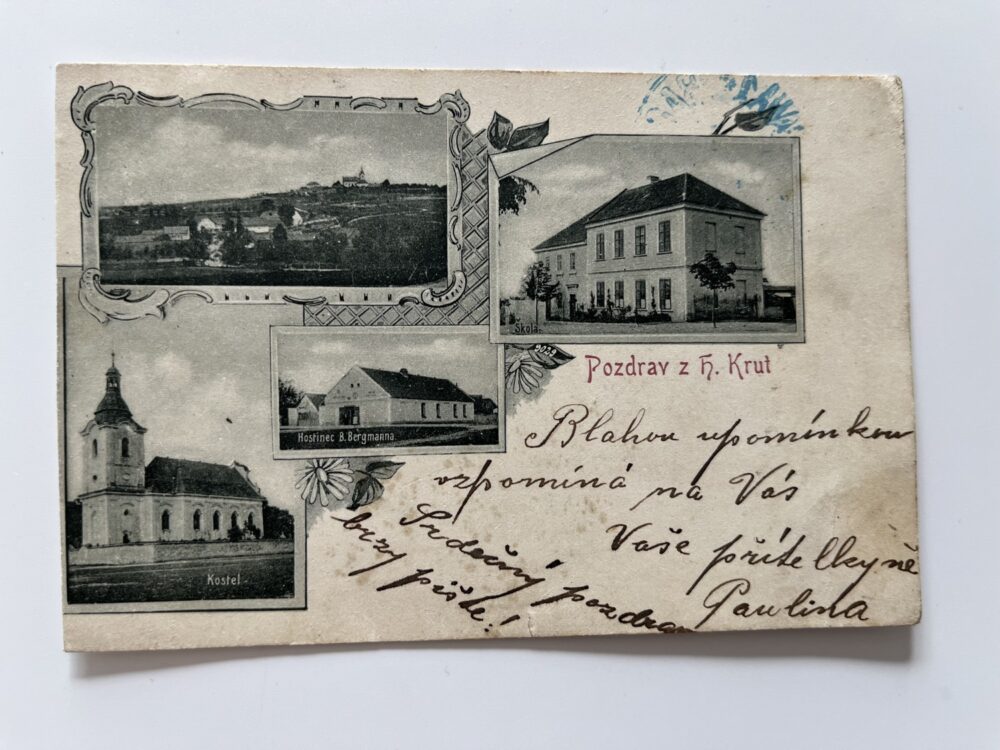 Škola.
9029
Pozdrav z H. Krut
Hostinec B. Bergmanna.
Kostel
Blahou upomínkou
vzpomíná na Vás
Vaše přítelkyně
Paulina
Srdečný pozdrav
brzy pište!